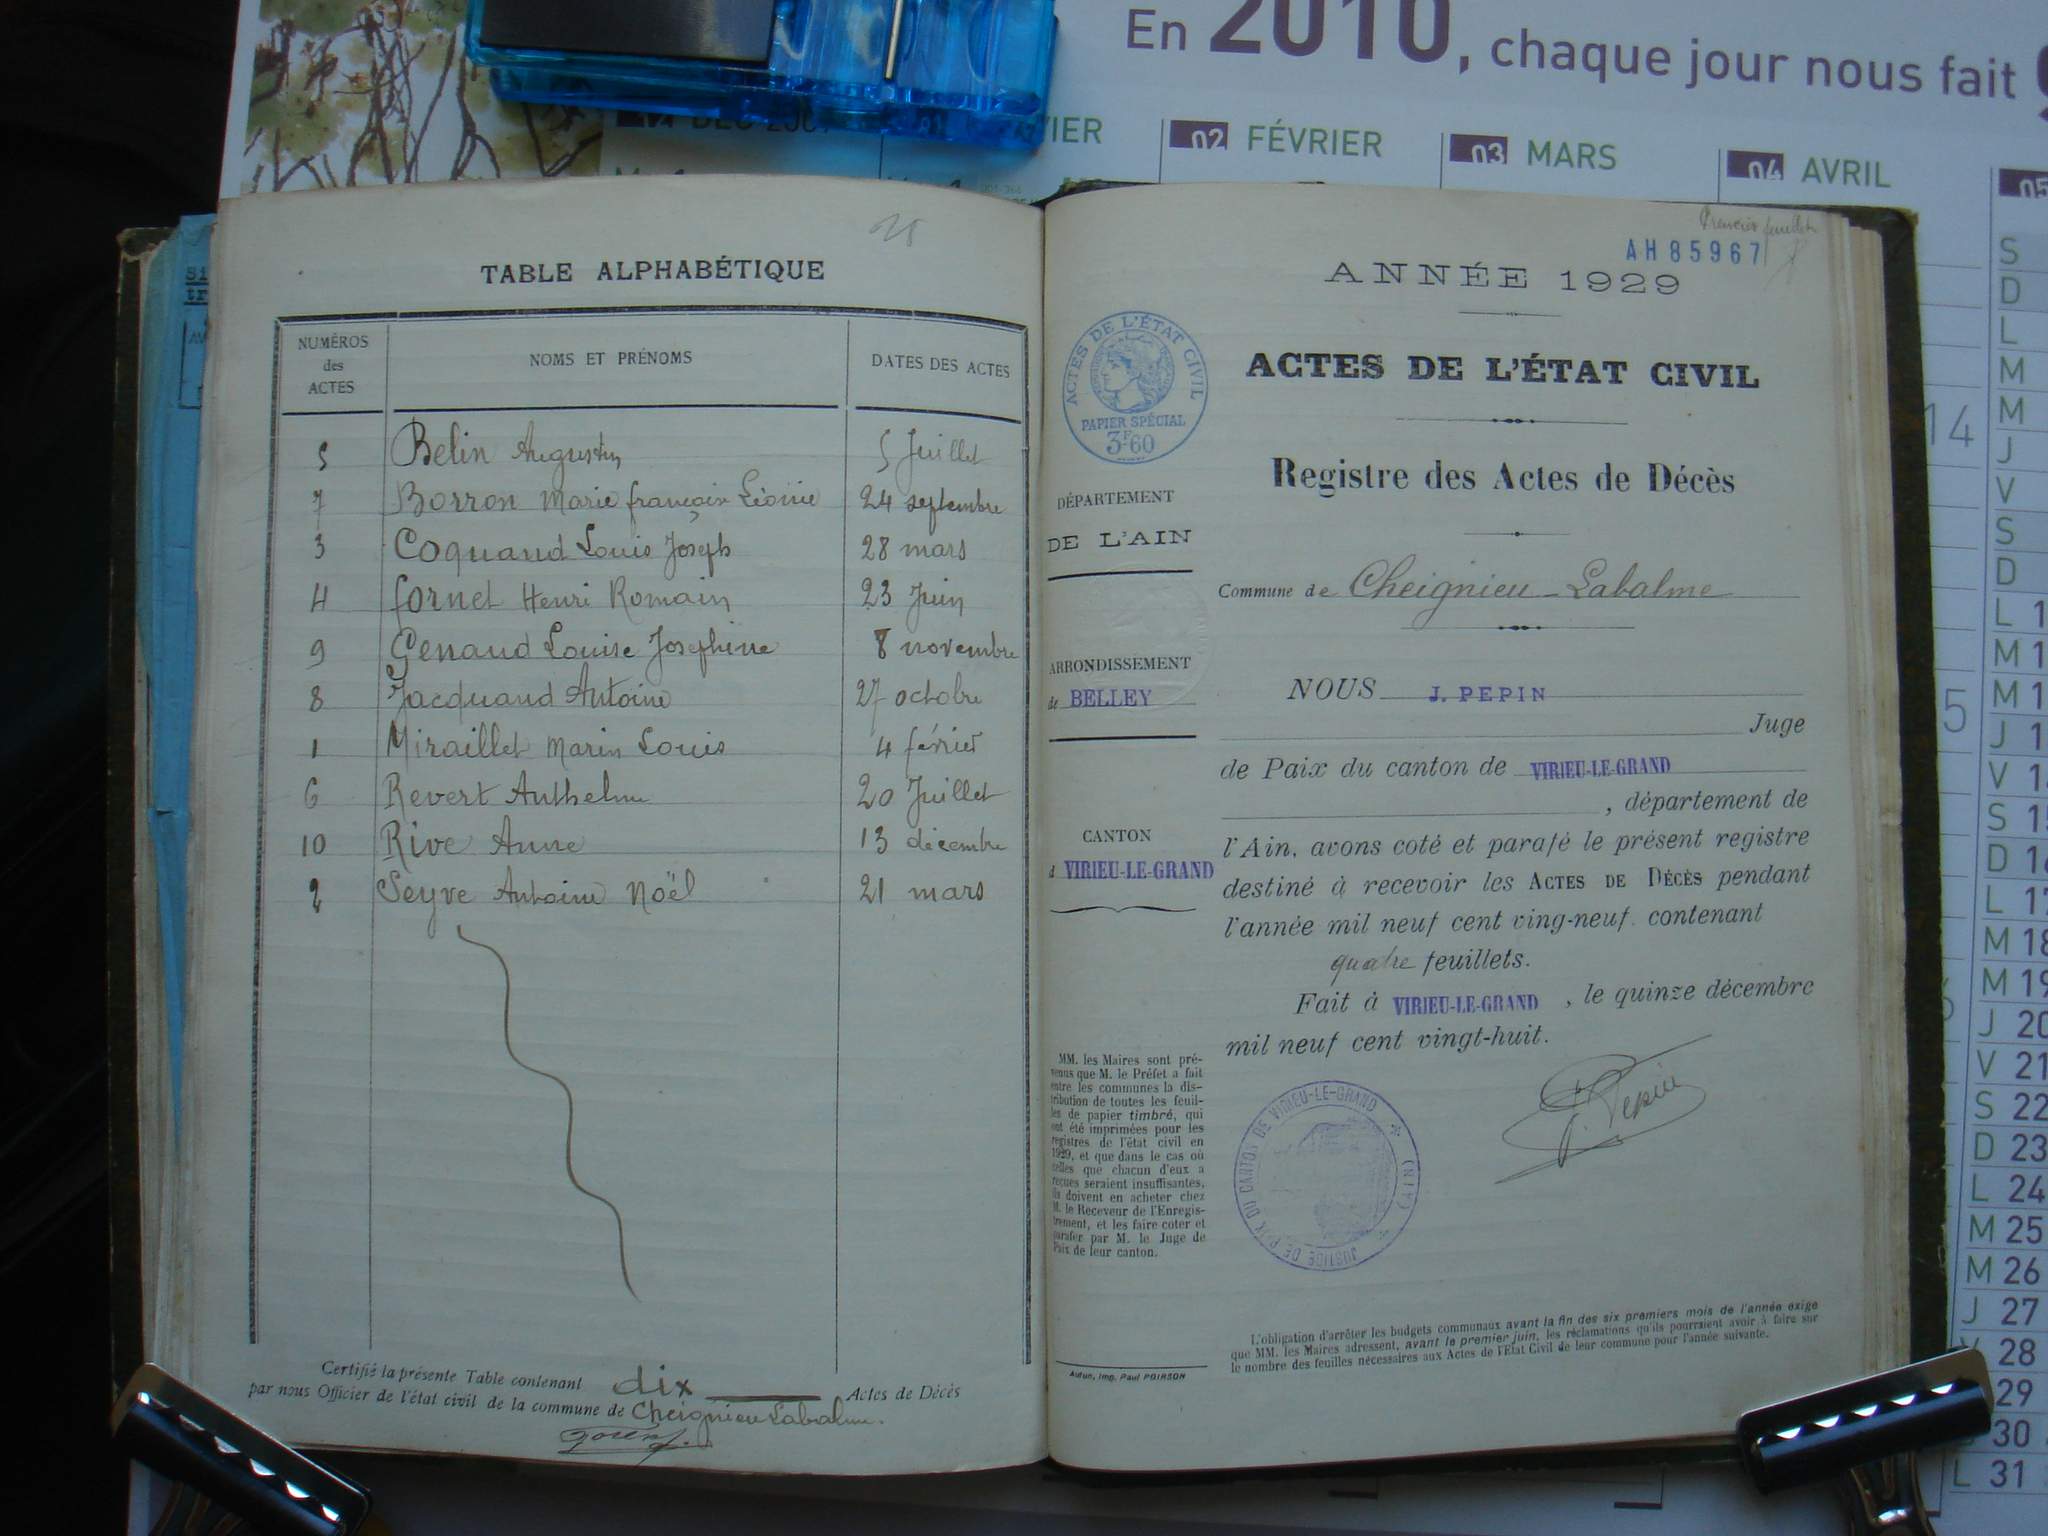 En 2010, chaque jour nous fait
DEC 200
VIER
02 FÉVRIER
03 MARS
04 AVRIL
05
TABLE ALPHABÉTIQUE
NUMÉROS des ACTES
NOMS ET PRÉNOMS
DATES DES ACTES
5 Belin Augustin 5 Juillet
7 Borron Marie françoise Léonie 24 septembre
3 Coquand Louis Joseph 28 mars
4 fornet Henri Romain 23 Juin
9 Genaud Louise Joséphine 8 novembre
8 Jacquand Antoine 27 octobre
1 Miraillet Marin Louis 4 février
6 Revert Anthelme 20 Juillet
10 Rive Anne 13 décembre
2 Seyve Antoine Noël 21 mars
Certifié la présente Table contenant dix Actes de Décès
par nous Officier de l'état civil de la commune de Cheignieu Labalme.
Premier feuillet
AH85967
ANNÉE 1929
ACTES DE L'ÉTAT CIVIL
PAPIER SPÉCIAL
3F60
ACTES DE L'ÉTAT CIVIL
Registre des Actes de Décès
DÉPARTEMENT
DE L'AIN
Commune de Cheignieu-Labalme
ARRONDISSEMENT
de BELLEY
NOUS J. PEPIN
Juge
de Paix du canton de VIRIEU-LE-GRAND
, département de
CANTON
d VIRIEU-LE-GRAND
l'Ain, avons coté et parafé le présent registre
destiné à recevoir les ACTES DE DÉCÈS pendant
l'année mil neuf cent ving-neuf. contenant
quatre feuillets.
Fait à VIRIEU-LE-GRAND, le quinze décembre
mil neuf cent vingt-huit.
J. Pepin
JUSTICE DE PAIX DU CANTON DE VIRIEU-LE-GRAND * (AIN) *
MM. les Maires sont pré-
venus que M. le Préfet a fait
entre les communes la dis-
tribution de toutes les feuil-
les de papier timbré, qui
ont été imprimées pour les
registres de l'état civil en
1929, et que dans le cas où
celles que chacun d'eux a
reçues seraient insuffisantes,
ils doivent en acheter chez
M. le Receveur de l'Enregis-
trement, et les faire coter et
parafer par M. le Juge de
Paix de leur canton.
L'obligation d'arrêter les budgets communaux avant la fin des six premiers mois de l'année exige
que MM. les Maires adressent, avant le premier juin, les réclamations qu'ils pourraient avoir à faire sur
le nombre des feuilles nécessaires aux Actes de l'Etat Civil de leur commune pour l'année suivante.
Autun, Imp. Paul POIRSON
14
S
D
L
M
M
J
V
S
D
L 1
M 1
M 1
J 1
V 1
S 15
D 16
L 17
M 18
M 19
J 20
V 21
S 22
D 23
L 24
M 25
M 26
J 27
V 28
29
30
L 31